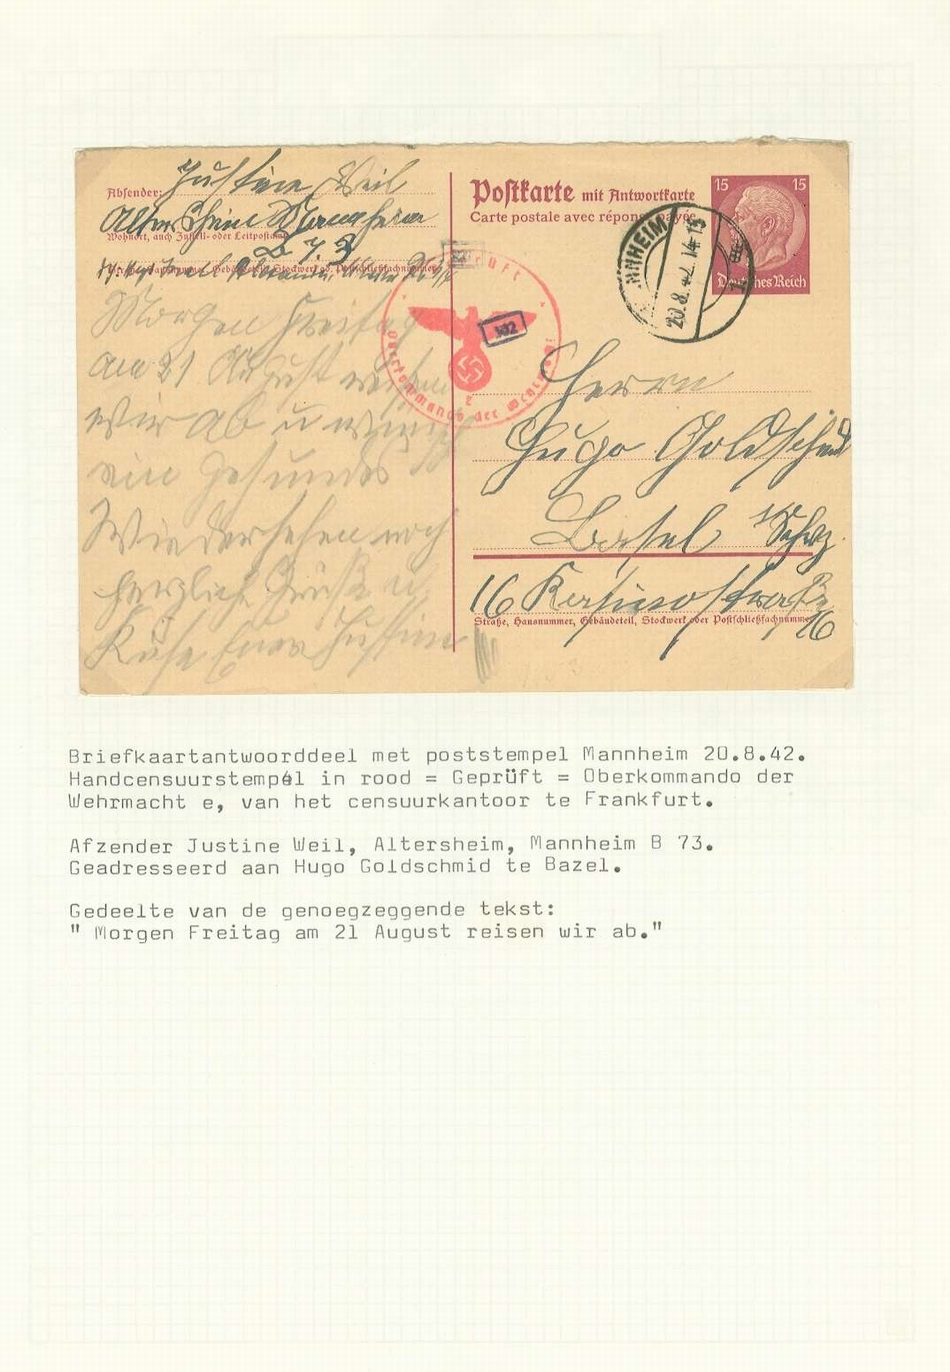 Absender: Justine Weil
Altersheim Mannheim
Wohnort, auch Zustell- oder Leitpostamt
B 7 3
Morgen Freitag
am 21 August reisen
wir ab u
ein gesundes
Wiedersehen noch
herzliche Grüße u
Küße Euer Justine
Postkarte mit Antwortkarte
Carte postale avec réponse payée
15 15
Deutsches Reich
MANNHEIM
20.8.42 14-15
Geprüft
Oberkommando der Wehrmacht
e
502
Herrn
Hugo Goldschmid
Basel Schwz.
16 Kasinostraße
Straße, Hausnummer, Gebäudeteil, Stockwerk oder Postschließfachnummer
16
Briefkaartantwoorddeel met poststempel Mannheim 20.8.42.
Handcensuurstempél in rood = Geprüft = Oberkommando der
Wehrmacht e, van het censuurkantoor te Frankfurt.
Afzender Justine Weil, Altersheim, Mannheim B 73.
Geadresseerd aan Hugo Goldschmid te Bazel.
Gedeelte van de genoegzeggende tekst:
" Morgen Freitag am 21 August reisen wir ab."